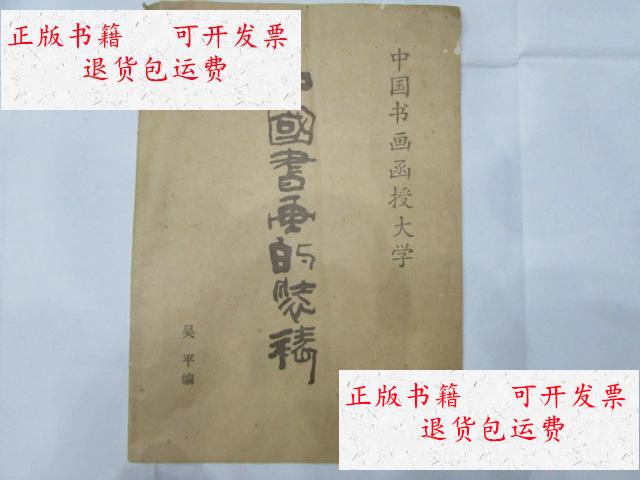 正版书籍 可开发票
退货包运费
中国书画函授大学
國書画的装裱
吴平编
正版书籍 可开发票
退货包运费